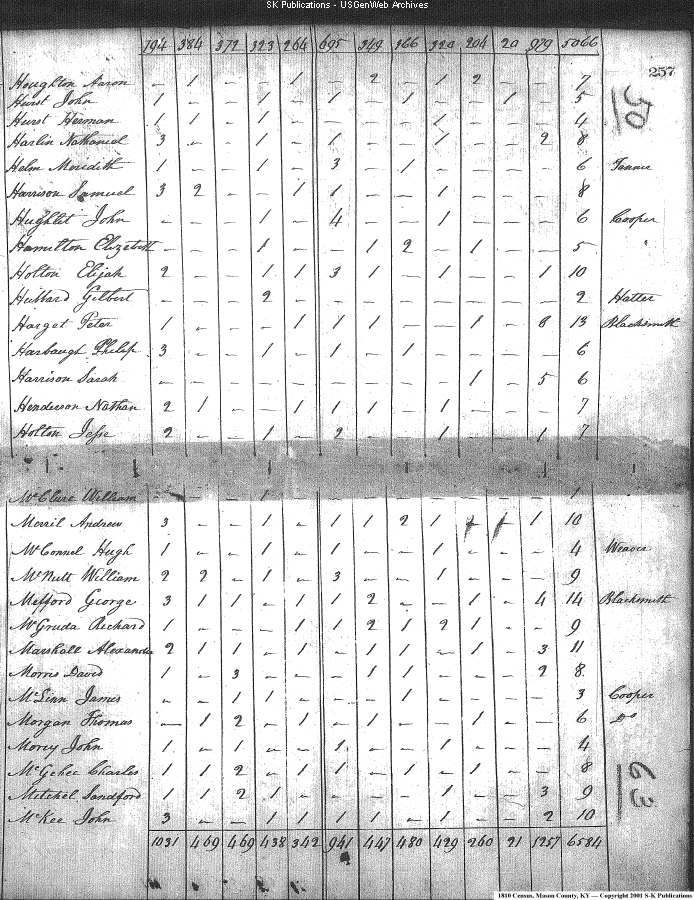 SK Publications - USGenWeb Archives
194 384 372 323 264 695 349 366 320 204 20 979 5066
257
50
Houghton Aaron - 1 - - 1 - 2 - 1 2 - - 7
Hurst John 1 - - 1 - 1 - 1 - - 1 - 5
Hurst Herman 1 1 - 1 - - - - 1 - - - 4
Harlin Nathaniel 3 - - 1 - 1 - - 1 - - 2 8
Helm Meredith 1 - - 1 - 3 - 1 - - - - 6 Tanner
Harrison Samuel 3 2 - - 1 1 - - 1 - - - 8
Hughlet John - - - 1 - 4 - - 1 - - - 6 Cooper
Hamilton Elizabeth - - - 1 - - 1 2 - 1 - - 5
Holton Elijah 2 - - 1 1 3 1 - 1 - - 1 10
Hubbard Gilbert - - - 2 - - - - - - - - 2 Hatter
Harget Peter 1 - - - 1 1 1 - - 1 - 8 13 Blacksmith
Harbaugh Philip 3 - - 1 - 1 - 1 - - - - 6
Harrison Sarah - - - - - - - - - 1 - 5 6
Henderson Nathan 2 1 - - 1 1 1 - 1 - - - 7
Holton Jesse 2 - - 1 - 2 - - 1 - - 1 7
McClure William - - - 1 - - - - - - - - 1
Morril Andrew 3 - - 1 - 1 1 2 1 - 1 10
McConnel Hugh 1 - - 1 - 1 - - 1 - - - 4 Weaver
McNutt William 2 2 - 1 - 3 - - 1 - - - 9
Mefford George 3 1 1 - 1 1 2 - - 1 - 4 14 Blacksmith
McGruda Richard 1 - - - 1 1 2 1 2 1 - - 9
Marshall Alexander 2 1 1 - 1 - 1 1 - 1 - 3 11
Morris David 1 - 3 - - - 1 1 - - - 2 8
McLinn James - - 1 1 - - - 1 - - - - 3 Cooper
Morgan Thomas - 1 2 - 1 - 1 - - 1 - - 6 Do
Morey John 1 - 1 - - 1 - - 1 - - - 4
McGehee Charles 1 1 2 - 1 1 - 1 - 1 - - 8
Mitchel Sandford 1 1 2 1 - - - - 1 - - 3 9
McKee John 3 - - 1 1 1 1 - 1 - - 2 10
63
1031 469 469 438 342 941 447 480 429 260 21 1257 6584
1810 Census, Mason County, KY — Copyright 2001 S-K Publications